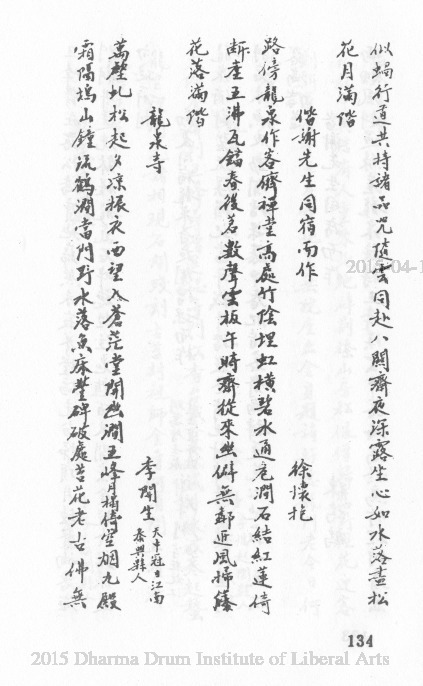 似蝸行道共持諸品咒隨雲同赴八關齋夜深露坐心如水落盡松
花月滿階
偕謝先生同宿而作
徐懷挹
路傍龍泉作客儕禪堂高處竹陰埋虹橫碧水通危澗石結紅蓮倚
斷崖玉沸瓦鐺春後茗數聲雲板午時齋從來幽僻無鄰近風掃藤
花落滿階
龍泉寺
李開生 天中冠日江南
泰興縣人
萬壑虬松起夕涼振衣西望入蒼茫堂開幽澗五峰月橋倚空烟九殿
霜隔塢山鐘流鶴澗當門野水落魚床豐碑破處苔花老古佛無
134
2015 Dharma Drum Institute of Liberal Arts